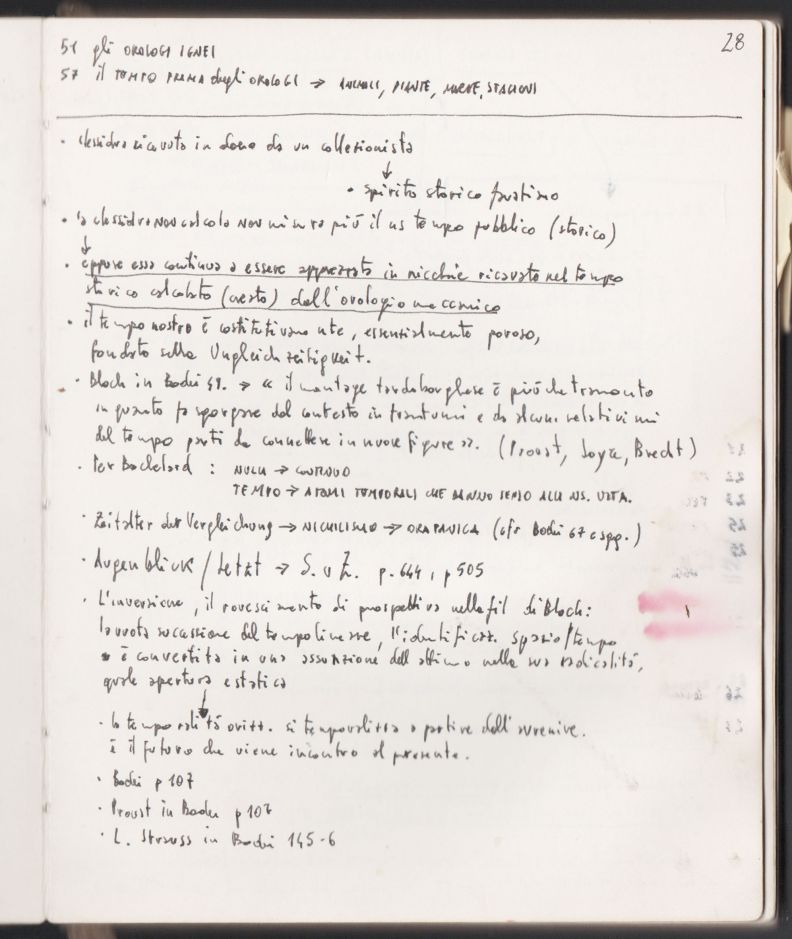 28
51 gli OROLOGI IGNEI
57 il TEMPO PRIMA degli OROLOGI → ANIMALI, PIANTE, MAREE, STAGIONI
• clessidra ricevuta in dono da un collezionista
↓
• spirito storico
• la clessidra NON calcola NON misura più il ns tempo pubblico (storico)
↓
• eppure essa continua a essere apprezzata in nicchie ricavate nel tempo
storico calcolato (creato) dall'orologio meccanico
• il tempo nostro è costitutivamente, essenzialmente poroso,
fondato sulla Ungleichzeitigkeit.
• Bloch in Bodei 41. → « il montage tardoborghese è più che tramonto
in quanto fa sgorgare dal contesto in frantumi e da relativismi
del tempo parti da connettere in nuove figure ». (Proust, Joyce, Brecht)
• Per Bachelard : NULLA → CONTINUO
TEMPO → ATOMI TEMPORALI CHE DANNO SENSO ALLA NS. VITA.
• Zeitalter der Vergleichung → NICHILISMO → ORA PANICA (cfr Bodei 67 e sgg.)
• Augenblick / Jetzt → S. u Z. p. 644, p 505
• L'inversione, il rovesciamento di prospettiva nella fil di Bloch:
la vuota successione del tempo lineare, l'identificaz. spazio/tempo
è convertita in una assunzione dell'attimo nella sua radicalità,
quale apertura estatica
↓
• la temporalità si temporalizza a partire dall'avvenire.
È il futuro che viene incontro al presente.
• Bodei p 107
• Proust in Bodei p 107
• L. Strauss in Bodei 145-6